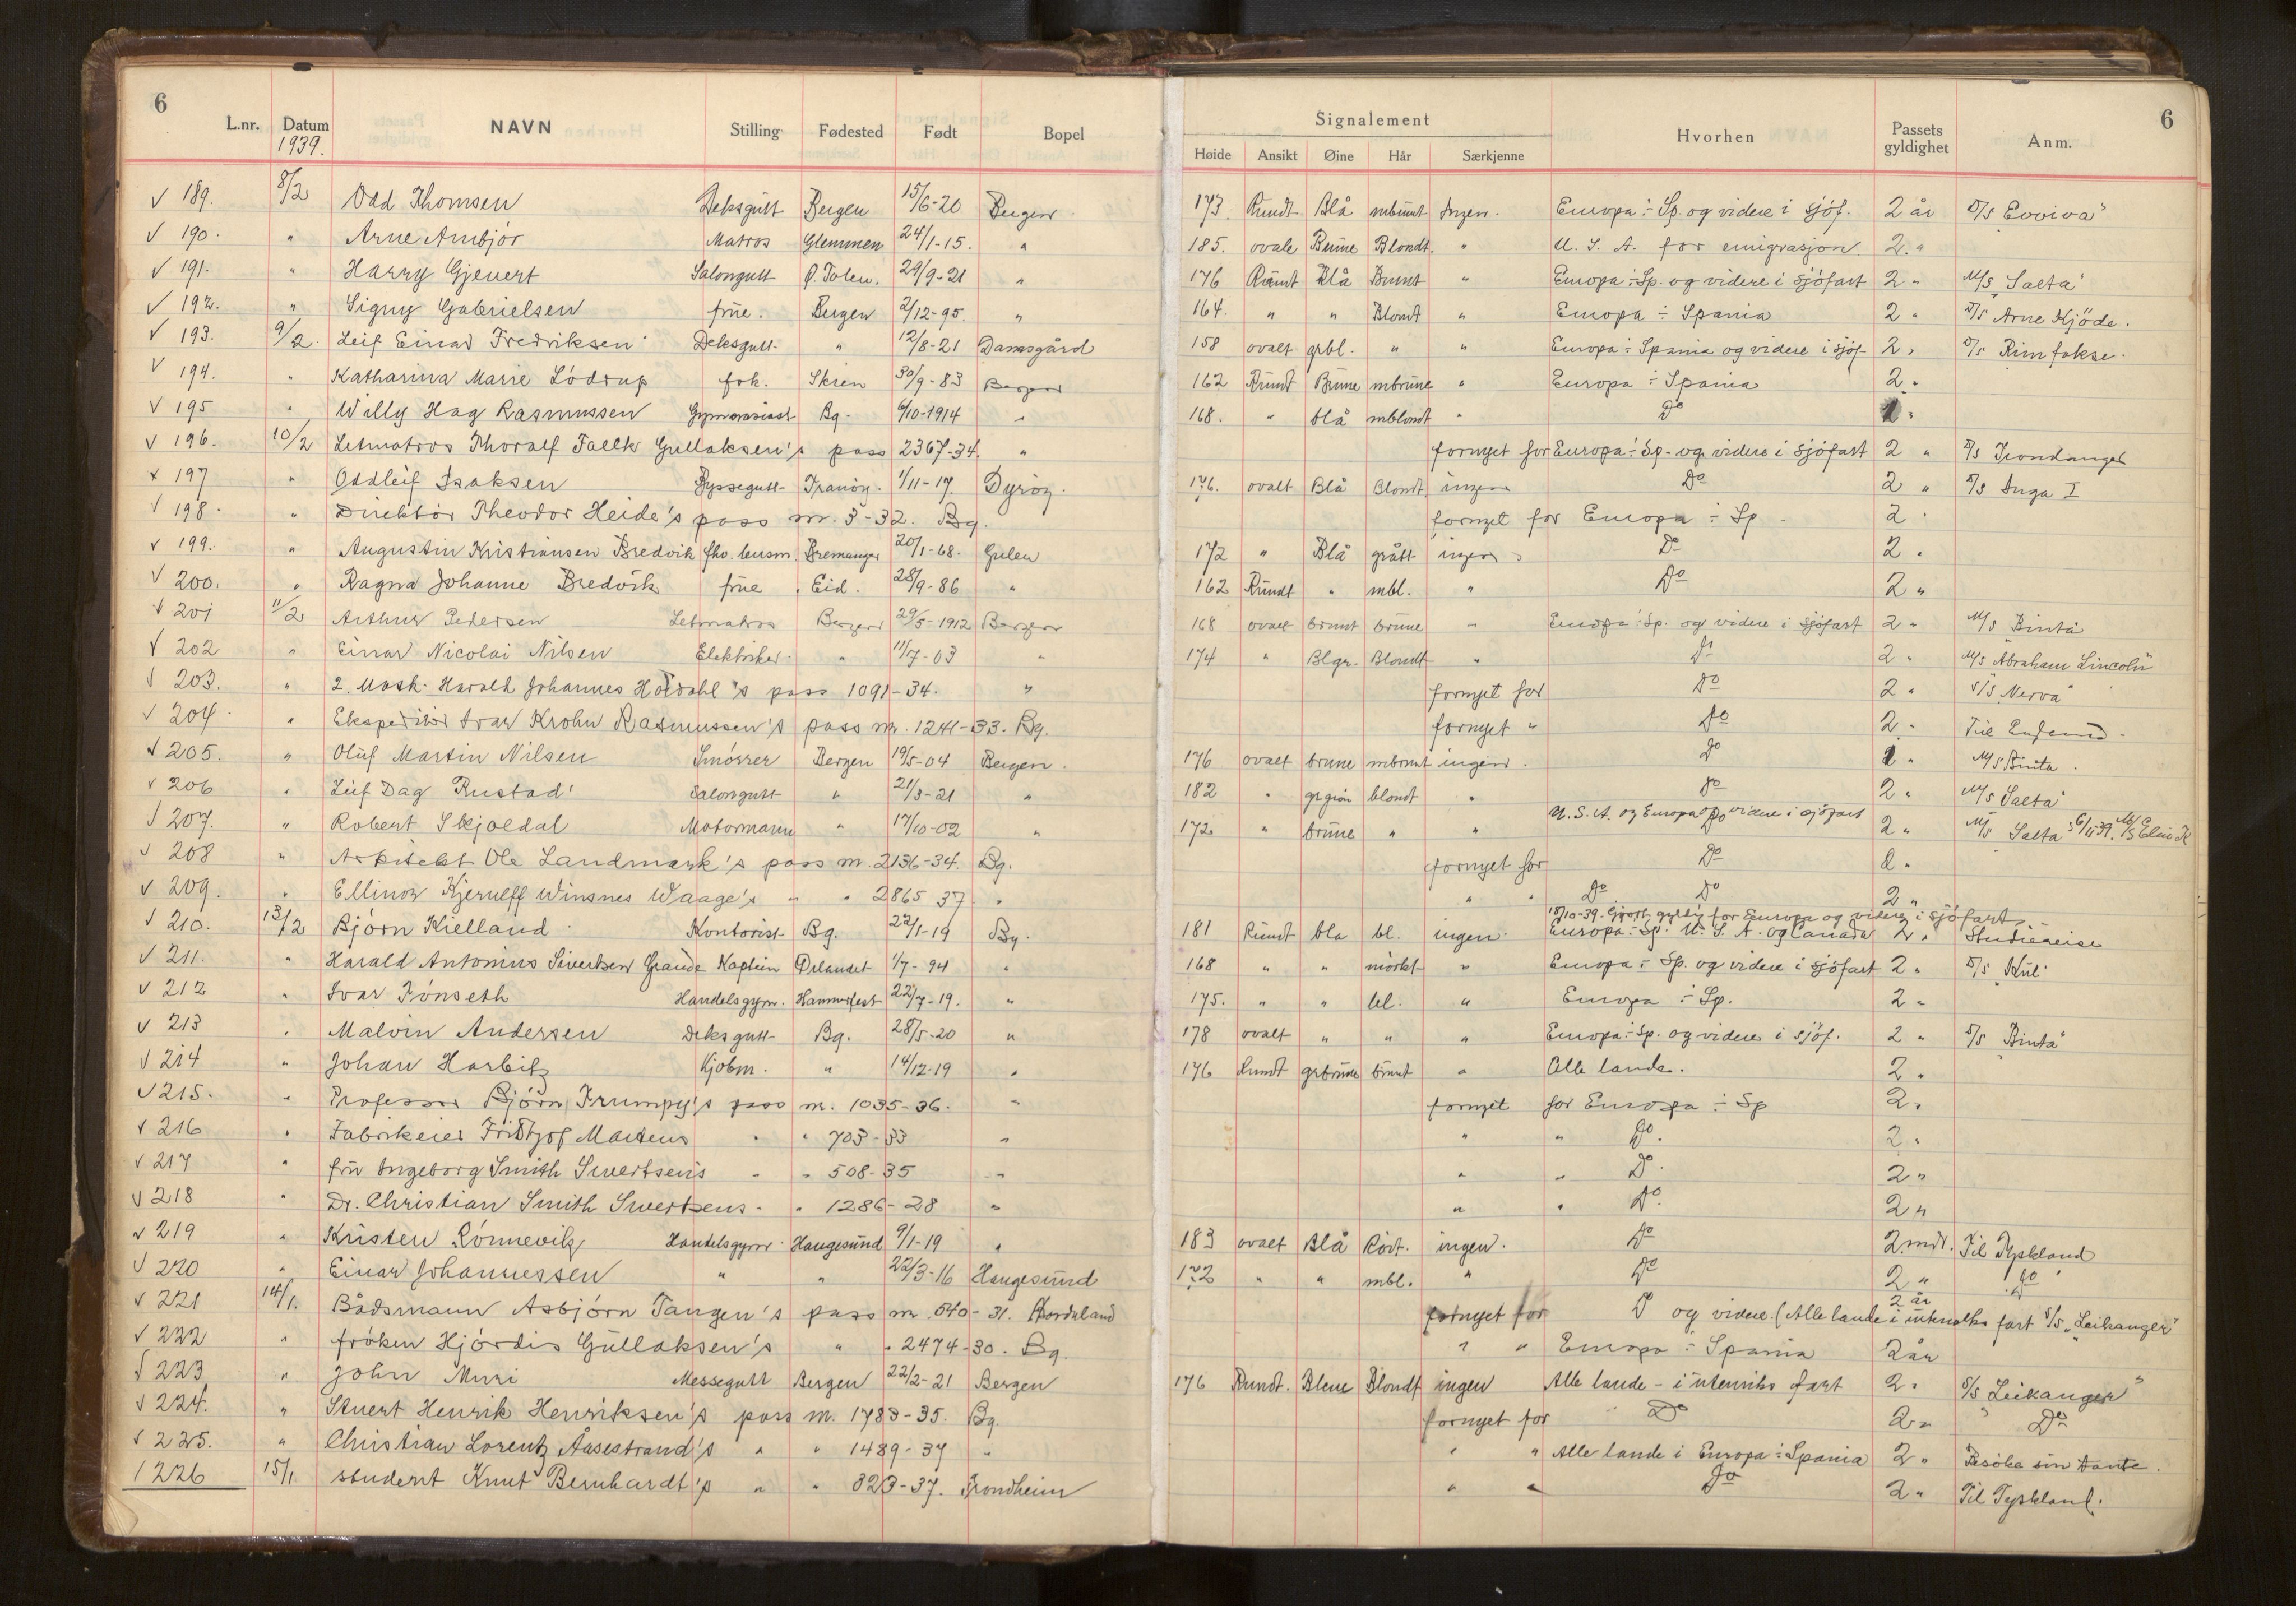 6
L.nr. Datum NAVN Stilling Fødested Født Bopel
1939.
189. 8/2 Odd Thomsen Deksgutt Bergen 15/6-20 Bergen
190. " Arne Arnbjør Matros Glemmen 24/1-15. "
191. " Harry Gjevert Salongutt Ø. Toten. 29/9-21 "
192. " Signy Gabrielsen frue. Bergen 2/12-95. "
193. 9/2 Leif Einar Fredriksen Deksgutt " 12/8-21 Damsgård
194. " Katharina Marie Lödrup frk. Skien 30/9-83 Bergen
195 " Willy Hag Rasmussen Gymnasiast Bg. 6/10-1914 "
196. 10/2 Letmatros Thoralf Falck Gullaksen's pass 2367-34. "
197 " Oddleif Isaksen Byssegutt Tranöy. 1/11-17. Dyröy.
198. " Direktör Theodor Heide's pass nr. 5-32. Bg.
199. " Augustin Kristiansen Bredvik fhv. lensm. Bremanger 20/1-68. Gulen
200. " Ragna Johanne Bredvik frue Eid. 28/9-86 "
201 11/2 Arthur Pedersen Letmatros Bergen 29/5-1912 Bergen
202 " Einar Nicolai Nilsen Elektriker " 11/7-03 "
203. " 2. Mask. Harald Johannes Hordahl's pass 1091-34. "
204 " Ekspeditör Ivar Krohn Rasmussen's pass nr. 1241-33. Bg.
205. " Oluf Martin Nilsen Smörer Bergen 19/5-04 Bergen.
206 " Leif Dag Rustad Salongutt " 21/3-21 "
207. " Robert Skjoldal Motormann " 17/10-02 "
208 " Arkitekt Ole Landmark's pass nr. 2136-34. Bg.
209. " Ellinor Kjerulff Winsnes Waage's " " 2865 37 "
210. 13/2 Bjørn Kielland Kontorist Bg. 22/1-19 Bg.
211. " Harald Antonius Sivertsen Grande Kaptein Ørlandet 1/7-94 "
212 " Ivar Tönseth Handelsgym. Hammerfest 22/7-19. "
213 " Malvin Andersen Deksgutt Bg. 28/5-20 "
214 " Johan Harbitz Kjøbm. " 14/12-19 "
215. " Professor Bjørn Trumpy's pass nr. 1035-36. "
216 " Fabrikeier Fridtjof Martens " " 703-33 "
217 " fru Ingeborg Smith Sivertsen's " " 508-35 "
218 " Dr. Christian Smith Sivertsens " " 1286-28 "
219 " Kristen Rönnevik Handelsgym. Haugesund 9/1-19 "
220 " Einar Johannessen " " 22/3-16 Haugesund
221 14/1. Bådsmann Asbjörn Tangen's pass nr. 540-31. Hordaland
222 " fröken Hjördis Gullaksen's " " 2474-30. Bg.
223 " John Muri Messegutt Bergen 22/2-21 Bergen
224. " Stuert Henrik Henriksen's pass nr. 1783-35. Bg.
225. " Christian Lorentz Aasestrand's " " 1489-37 "
226 15/1 student Knut Bernhardt's " " 323-37. Trondheim
6
Signalement Hvorhen Passets gyldighet Anm.
Høide Ansikt Øine Hår Særkjenne
173. Rundt Blå mbrunt Ingen. Europa ÷ Sp. og videre i sjöf. 2 år D/S "Evviva"
185. ovale Brune Blondt. " U. S. A. for emigrasjon. 2 "
176 Rundt Blå Brunt " Europa ÷ Sp. og videre i sjöfart 2 " M/S "Salta"
164. " " Blondt " Europa ÷ Spania 2 " D/S Arne Kjöde.
158 ovalt grbl. " " Europa ÷ Spania og videre i sjöf 2 " D/S Rimfakse.
162 Rundt Brune mbrune " Europa ÷ Spania 2 "
168. " blå mblondt " Do "
fornyet for Europa ÷ Sp. og videre i sjöfart 2 " D/S Trondanger
176. ovalt Blå Blondt ingen Do 2 " D/S Inga I
fornyet for Europa ÷ Sp. 2 "
172 " Blå grått ingen Do 2 "
162 Rundt " mbl. " Do 2 "
168 ovalt brunt brune " Europa ÷ Sp. og videre i sjöfart 2 " M/S Binta
174 " Blgr. Blondt " Do 2 " M/S "Abraham Lincoln"
fornyet for Do 2 " S/S "Nerva"
fornyet " Do 2 " Til England.
176 ovalt brune mbrunt ingen. Do " M/S Binta.
182 " grgrön blondt " Do 2 " M/S "Salta"
172 " brune " " U.S.A. og Europa og videre i sjöfart Do 2 " M/S Salta
fornyet for Do 2 "
" " Do Do 2 "
18/10-39. Gjort gyldig for Europa og videre i sjöfart
181 Rundt blå bl. ingen Europa ÷ Sp. U. S. A. og Canada 2 " Studiereise
168 " " mörkt " Europa ÷ Sp. og videre i sjöfart 2 "
175. " " bl. " Europa ÷ Sp. 2 "
178 ovalt " " " Europa ÷ Sp. og videre i sjöf. 2 " D/S "Binta"
176 Rundt grbrune brunt " Alle lande. 2 "
fornyet for Europa ÷ Sp 2 "
" " Do. 2 "
" " Do. 2 "
" " Do. 2 "
183 ovalt Blå " ingen. Do 2 mdr. Til Tyskland
172 " " mbl. " Do 2 " Do
fornyet for Do og videre (Alle lande i utenriks fart 2 år S/S "Leikanger"
" " Europa ÷ Spania 2 år
176 Rundt. Blene Blondt ingen Alle lande - i utenriks fart 2 " S/S "Leikanger"
fornyet for Do 2 " " Do
" " Alle lande i Europa ÷ Spania 2 " Besöke sin tante.
" " Do 2 " Til Tyskland.